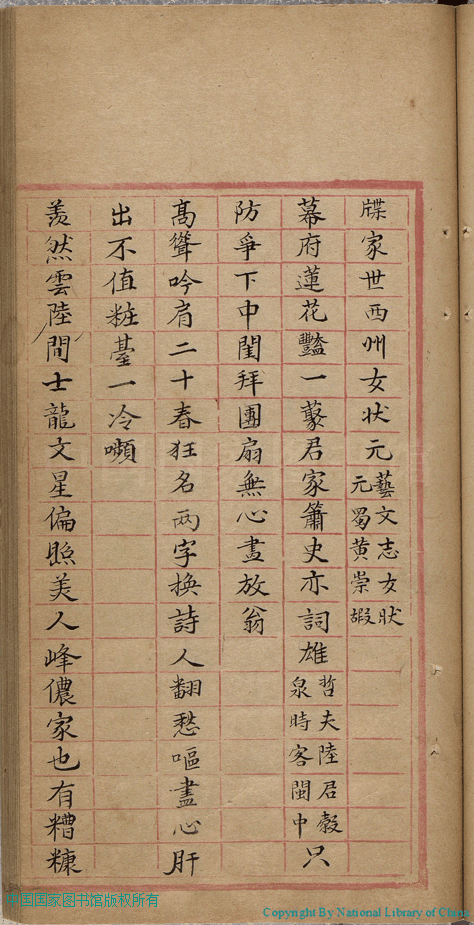 牒家世西州女状元藝文志女狀元蜀黄崇嘏
幕府蓮花豔一藂君家簫史亦詞雄哲夫陸君穀泉時客閩中只
防爭下中閨拜團扇無心畫放翁
髙聳吟肩二十春狂名两字换詩人翻愁嘔盡心肝
出不值粧臺一冷嚬
羨然雲陸間士龍文星偏照美人峰儂家也有糟糠
中国国家图书馆版权所有
Copyright By National Library of China